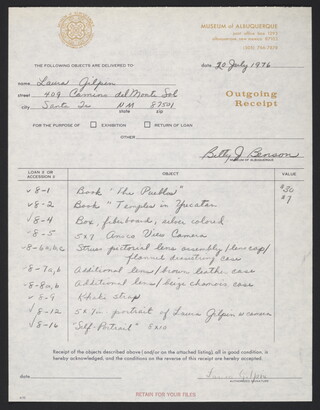 MUSEUM OF ALBUQUERQUE
post office box 1293
albuquerque new mexico 87103
(505) 766-7878
THE FOLLOWING OBJECTS ARE DELIVERED TO
date 20 July 1976
name Laura Gilpin
street 409 Camino del Monte Sol
city Santa Fe NM 87501
state zip
Outgoing
Receipt
FOR THE PURPOSE OF EXHIBITION RETURN OF LOAN
OTHER
Betty J Benson
MUSEUM OF ALBUQUERQUE
LOAN # OR
ACCESSION # OBJECT VALUE
✓8-1 Book "The Pueblos" $50
✓8-2 Book "Temples in Yucatan" $7
✓8-4 Box, fiberboard, silver colored
✓8-5 5x7 Ansco View Camera
8-6a,b,c Struss pictorial lens assembly/lens cap/
flannel drawstring case
8-7a,b Additional lens/brown leather case
8-8a,b Additional lens/beige chamois case
8-9 Khaki strap
✓8-12 5x7 in portrait of Laura Gilpin w camera
✓8-16 "Self-Portrait"
Receipt of the objects described above (and/or on the attached listing), all in good condition, is
hereby acknowledged, and the conditions on the reverse of this receipt are hereby accepted.
date
Laura Gilpin
AUTHORIZED SIGNATURE
RETAIN FOR YOUR FILES